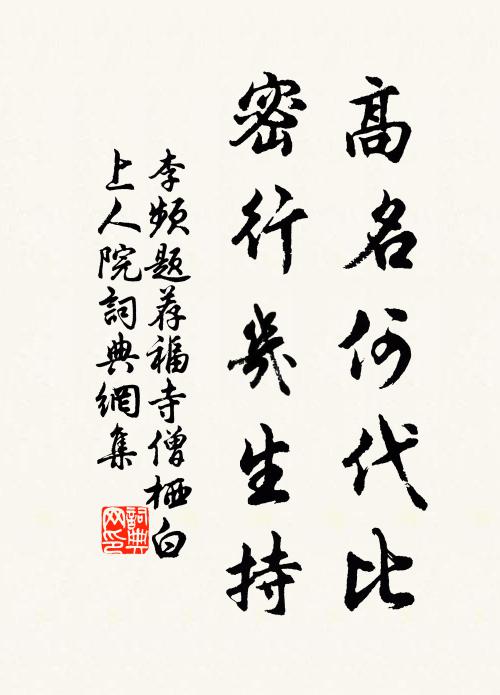 高名何代比
密行幾生持
李频题荐福寺僧栖白
上人院詞典網集
詞典网印